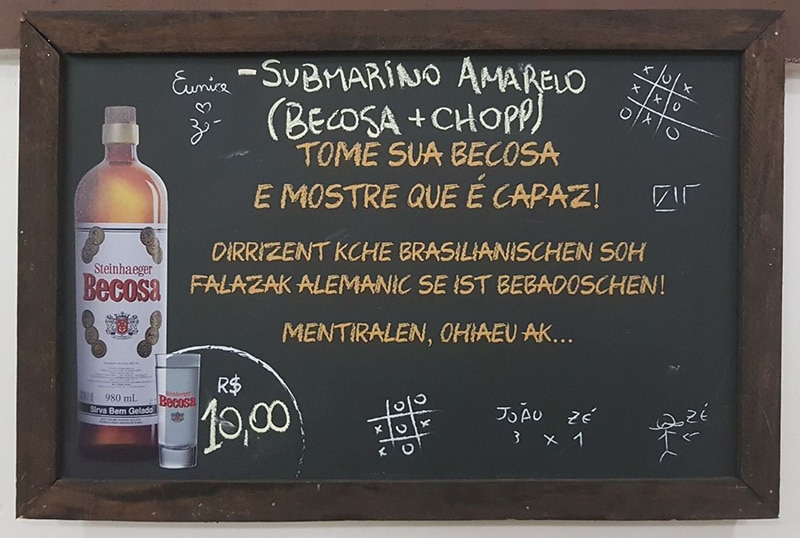 Eunice
Zé
-SUBMARINO AMARELO
(BECOSA + CHOPP)
TOME SUA BECOSA
E MOSTRE QUE É CAPAZ!
DIRRIZENT KCHE BRASILIANISCHEN SOH
FALAZAK ALEMANIC SE IST BEBADOSCHEN!
MENTIRALEN, OHIAEU AK...
Steinhaeger
Becosa
980 mL
Sirva Bem Gelado
Steinhaeger
Becosa
R$
10,00
JOÃO ZÉ
3 x 1
ZÉ